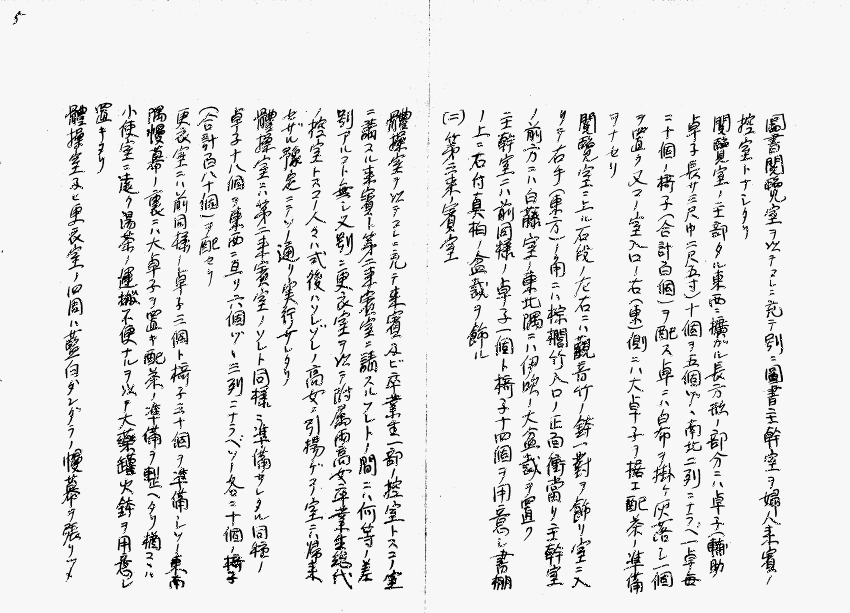 圖書閲覽室ヲ以テコレニ充テ別ニ圖書主幹室ヲ婦人来賓ノ
控室トナシタリ
閲覽室ノ主部タル東西ニ擴ガル長方形ノ部分ニハ卓子(輔助
卓子長サ三尺巾二尺五寸)十個ヲ五個ヅヽ南北二列ニナラベ一卓毎
ニ十個ノ椅子(合計百個)ヲ配ス卓ニハ白布ヲ掛ケ灰落シ一個
ヲ置ク又コノ室入口ノ右(東)側ニハ大卓子ヲ据エ配茶ノ準備
ヲナセリ
閲覽室ニ上ル石段ノ左右ニハ觀音竹ノ鉢一對ヲ飾リ室ニ入
リテ右手(東方)ノ角ニハ棕櫚竹入口ノ正面衝當リ主幹室
ノ前方ニハ白藤室ノ東北隅ニハ伊吹ノ大盆栽ヲ置ク
主幹室ニハ前同様ノ卓子一個ト椅子十四個ヲ用意シ書棚
ノ上ニ石付真柏ノ盆栽ヲ飾ル
(二)第二来賓室
體操室ヲ以テコレニ充テ来賓及ビ卒業生一部ノ控室トスコノ室
ニ請スル来賓ト第一来賓室ニ請スルソレトノ間ニハ何等ノ差
別アルコト無シ又別ニ更衣室ヲ以テ附属両高女卒業生総代
ノ控室トスコノ人々ハ式後ハソレゾレノ高女ニ引揚ゲコノ室ニハ歸来
セザル豫定ニテソノ通リ実行サレタリ
體操室ニハ第一来賓室ノソレト同様ニ準備サレタル同様ノ
卓子十八個ヲ東西ニ亘リ六個ヅヽ三列ニナラベソノ各ニ十個ノ椅子
(合計百八十個)ヲ配セリ
更衣室ニハ前同様ノ卓子三個ト椅子三十個ヲ準備シソノ東南
隅幔幕ノ裏ニハ大卓子ヲ置キ配茶ノ準備ヲ整ヘタリ猶コヽハ
小使室ニ遠ク湯茶ノ運搬不便ナルヲ以テ大藥罐火鉢ヲ用意シ
置キタリ
體操室及ビ更衣室ノ四周ハ藍白ダンダラノ幔幕ヲ張リツメ